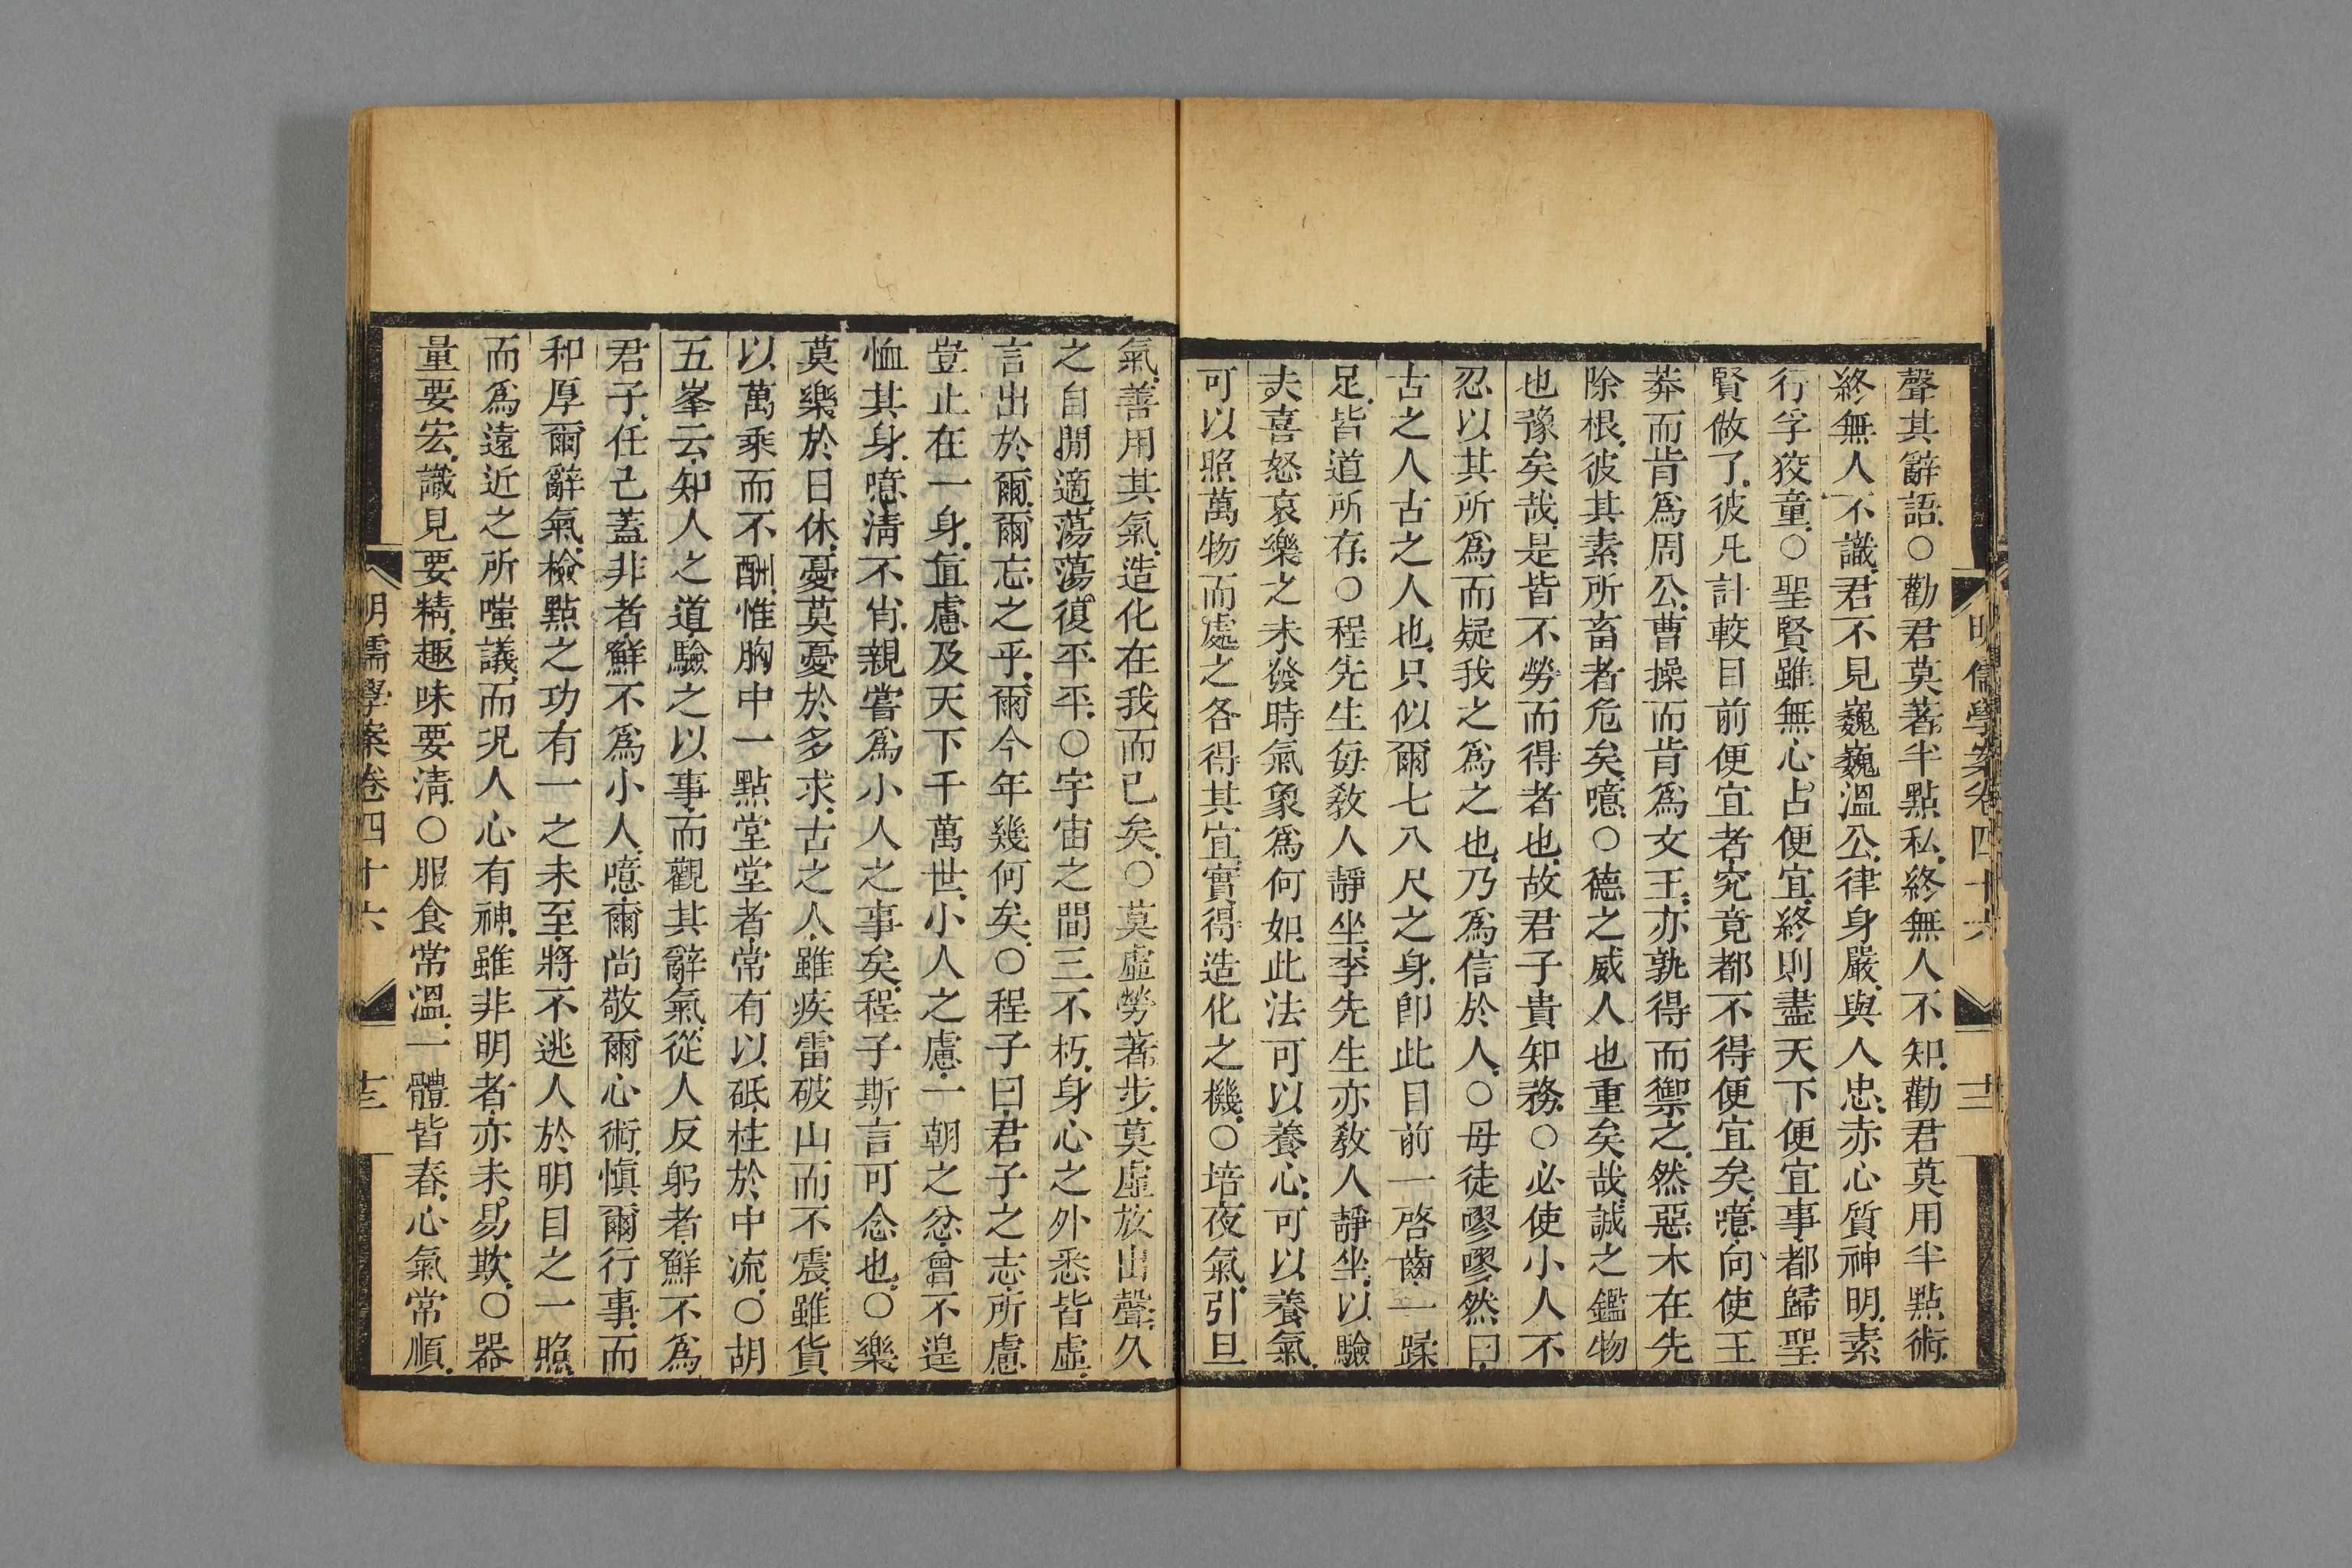 明儒學案卷四十六
十二
聲其辭語○勸君莫著半點私終無人不知勸君莫用半點術
終無人不識君不見巍巍溫公律身嚴與人忠赤心質神明素
行孚狡童○聖賢雖無心占便宜終則盡天下便宜事都歸聖
賢做了彼凡計較目前便宜者究竟都不得便宜矣噫向使王
莽而肯爲周公曹操而肯爲文王亦孰得而禦之然惡木在先
除根彼其素所畜者危矣噫○德之威人也重矣哉誠之鑑物
也豫矣哉是皆不勞而得者也故君子貴知務○必使小人不
忍以其所爲而疑我之爲之也乃爲信於人○毋徒嘐嘐然曰
古之人古之人也只似爾七八尺之身卽此目前一啓齒一蹂
足皆道所存○程先生每敎人靜坐李先生亦敎人靜坐以驗
夫喜怒哀樂之未發時氣象爲何如此法可以養心可以養氣
可以照萬物而處之各得其宜實得造化之機○培夜氣引旦
氣善用其氣造化在我而已矣○莫虛勞著步莫虛放出聲久
之自閒適蕩蕩復平平○宇宙之間三不朽身心之外悉皆虛
言出於爾爾忘之乎爾今年幾何矣○程子曰君子之志所慮
豈止在一身直慮及天下千萬世小人之慮一朝之忿曾不遑
恤其身噫淸不肖親嘗爲小人之事矣程子斯言可念也○樂
莫樂於日休憂莫憂於多求古之人雖疾雷破山而不震雖貨
以萬乘而不酬惟胸中一點堂堂者常有以砥柱於中流○胡
五峯云知人之道驗之以事而觀其辭氣從人反躬者鮮不爲
君子任己蓋非者鮮不爲小人噫爾尚敬爾心術愼爾行事而
和厚爾辭氣檢點之功有一之未至將不逃人於明目之一照
而爲遠近之所嗤議而況人心有神雖非明者亦未易欺○器
量要宏識見要精趣味要淸○服食常溫一體皆春心氣常順
明儒學案卷四十六
十三